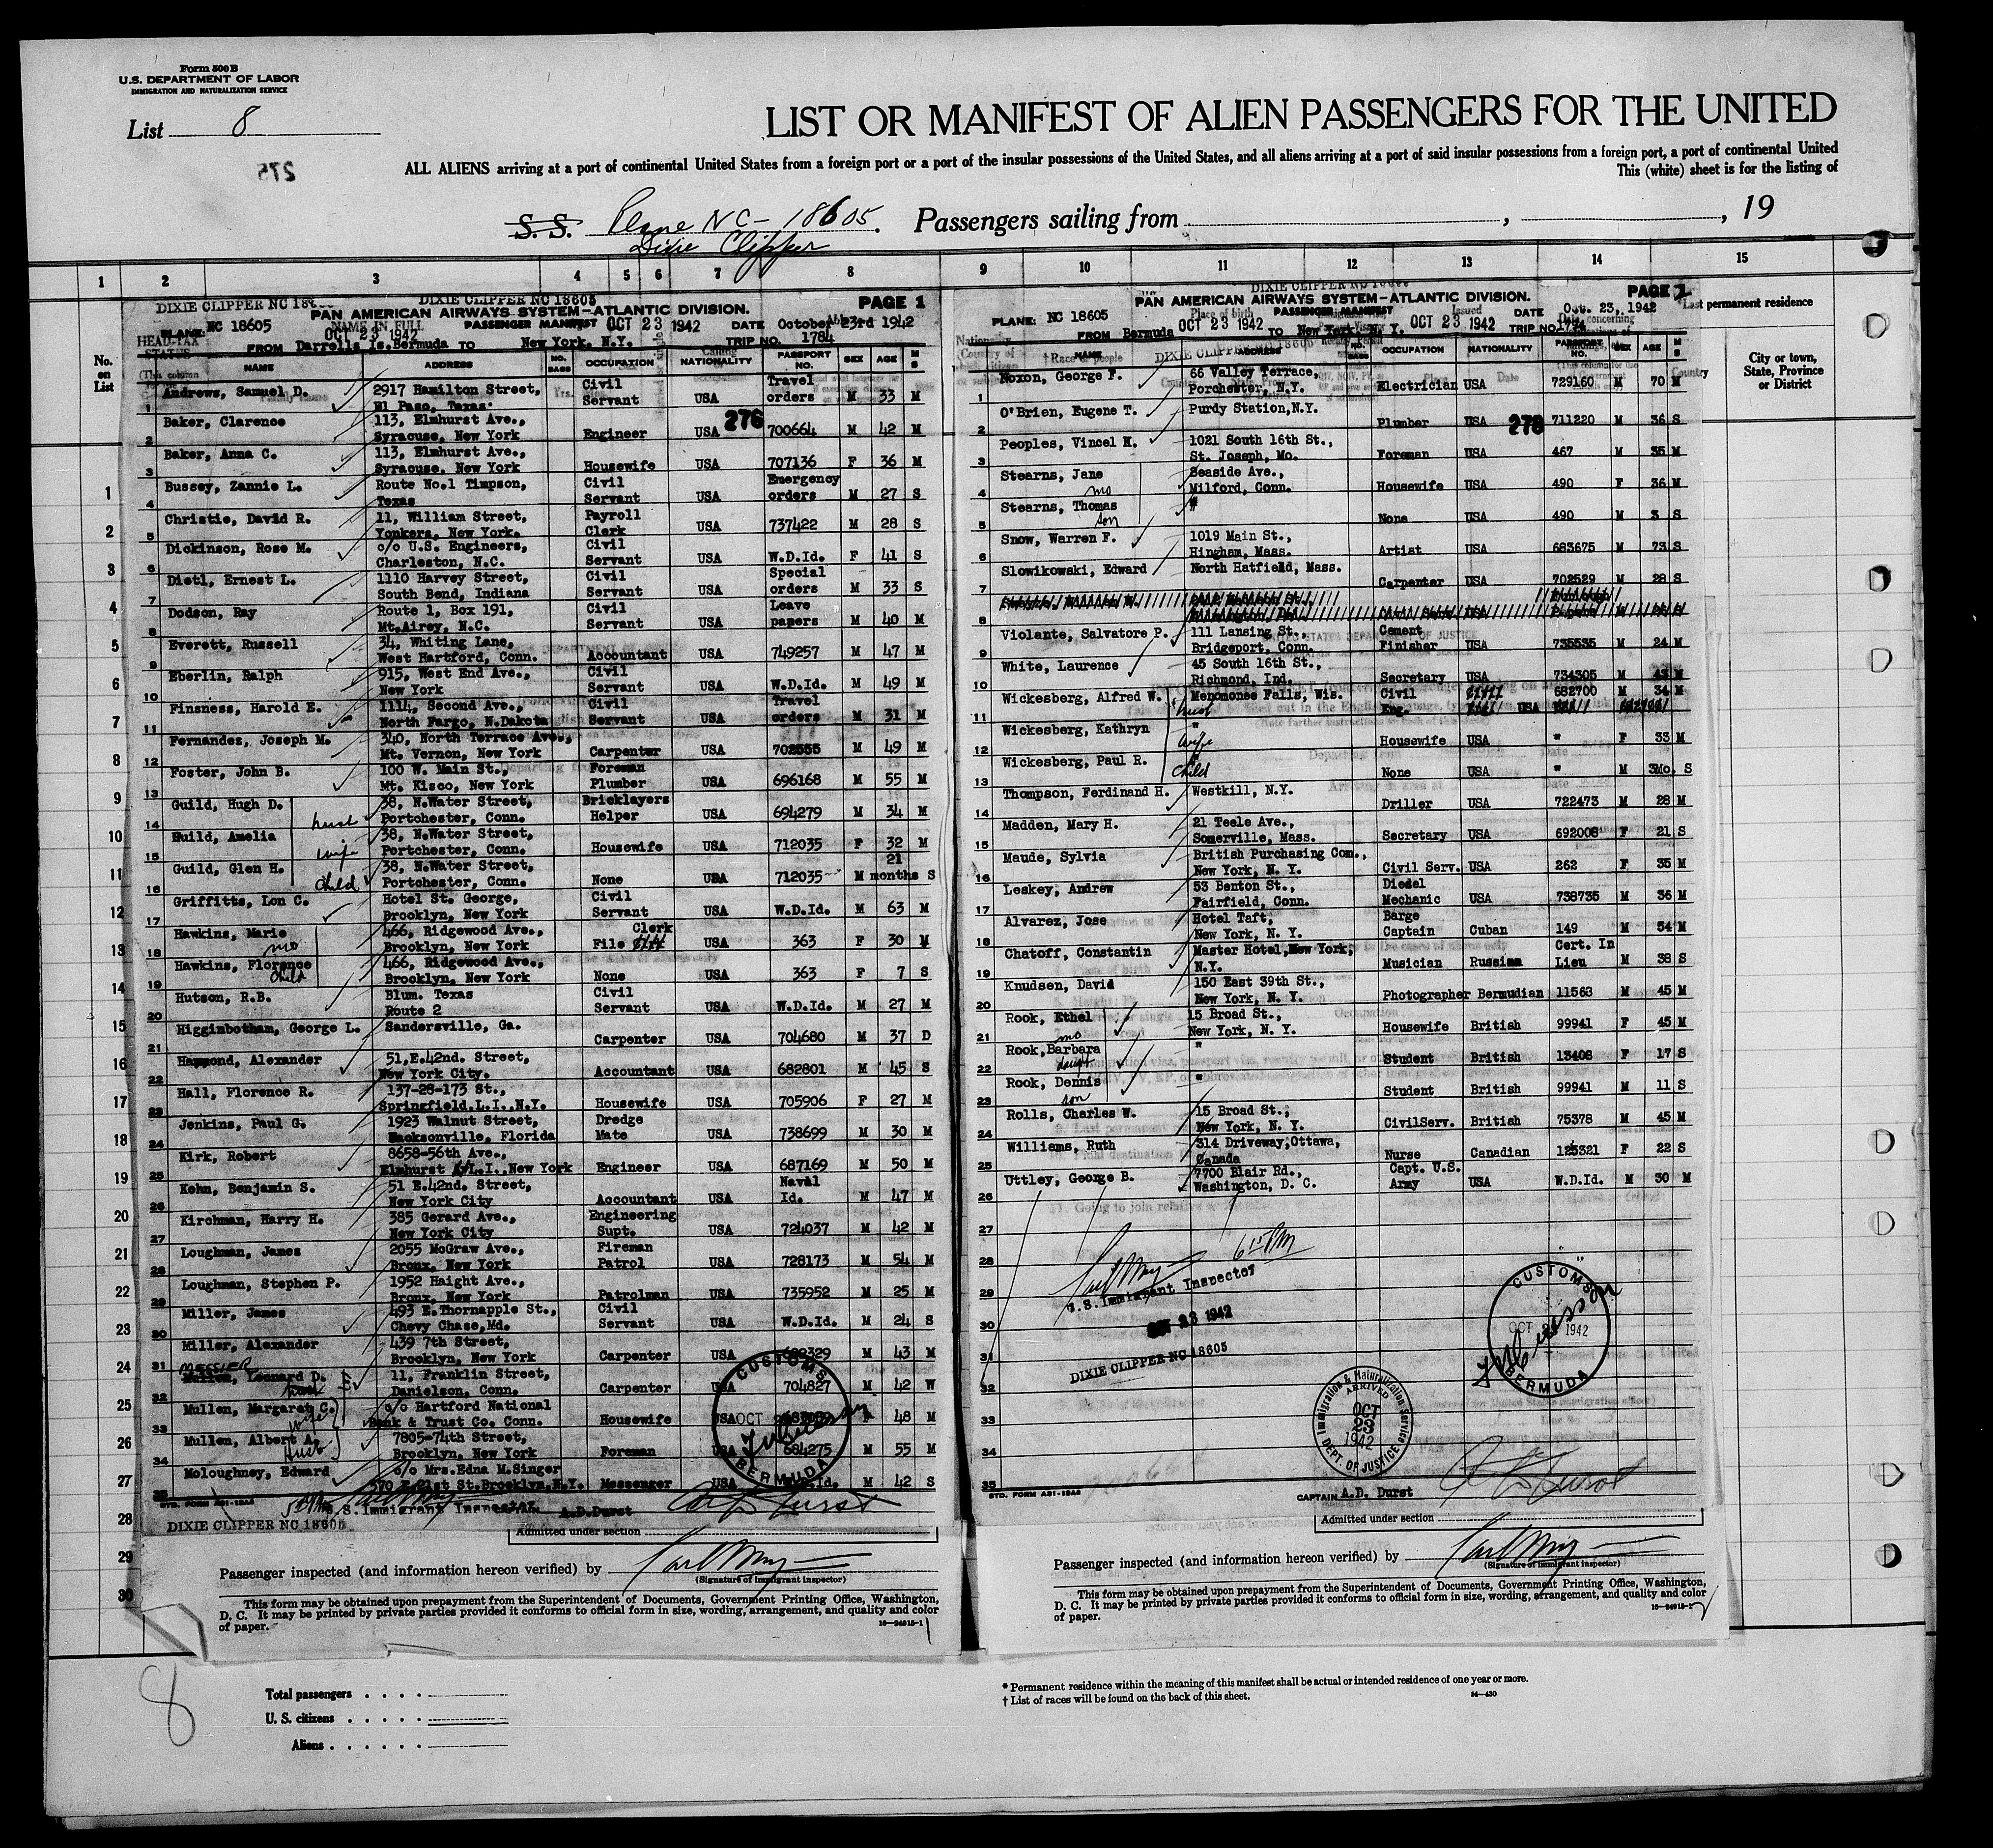 Form 500 B
U.S. DEPARTMENT OF LABOR
IMMIGRATION AND NATURALIZATION SERVICE
List 8
275
LIST OR MANIFEST OF ALIEN PASSENGERS FOR THE UNITED
ALL ALIENS arriving at a port of continental United States from a foreign port or a port of the insular possessions of the United States, and all aliens arriving at a port of said insular possessions from a foreign port, a port of continental United
This (white) sheet is for the listing of
S. S. Plane NC-18605. Passengers sailing from , , 19
Dixie Clipper
1 2 3 4 5 6 7 8 9 10 11 12 13 14 15
No. on List
DIXIE CLIPPER NC 18605
PAN AMERICAN AIRWAYS SYSTEM—ATLANTIC DIVISION. PAGE 1
PLANE: NC 18605 PASSENGER MANIFEST OCT 23 1942 DATE October 23rd 1942
OCT 23 1942
FROM Darrells Is.Bermuda TO New York. N.Y. TRIP NO. 1784
NAME ADDRESS NO. BAGS OCCUPATION NATIONALITY PASSPORT NO. SEX AGE M S
1 Andrews, Samuel D. 2917 Hamilton Street, El Paso, Texas. Civil Servant USA Travel orders M 33 M
276
2 Baker, Clarence 113, Elmhurst Ave., Syracuse, New York Engineer USA 700664 M 42 M
3 Baker, Anna C. 113, Elmhurst Ave., Syracuse, New York Housewife USA 707136 F 36 M
4 Bussey, Zannie L. Route No.1 Timpson, Texas Civil Servant USA Emergency orders M 27 S
5 Christie, David R. 11, William Street, Yonkers, New York. Payroll Clerk USA 737422 M 28 S
6 Dickinson, Rose M. c/o U.S. Engineers, Charleston, N.C. Civil Servant USA W.D.Id. F 41 S
7 Dietl, Ernest L. 1110 Harvey Street, South Bend, Indiana Civil Servant USA Special orders M 33 S
8 Dodson, Ray Route 1, Box 191, Mt.Airey, N.C. Civil Servant USA Leave papers M 40 M
9 Everett, Russell 34, Whiting Lane, West Hartford, Conn. Accountant USA 749257 M 47 M
10 Eberlin, Ralph 915, West End Ave., New York Civil Servant USA W.D.Id. M 49 M
11 Finsness, Harold E. 1114, Second Ave., North Fargo, N.Dakota Civil Servant USA Travel orders M 31 M
12 Fernandez, Joseph M. 340, North Terrace Ave., Mt. Vernon, New York Carpenter USA 702555 M 49 M
13 Foster, John B. 100 W. Main St., Mt. Kisco, New York Foreman Plumber USA 696168 M 55 M
14 Guild, Hugh D. husb 38, N.Water Street, Portchester, Conn. Bricklayers Helper USA 694279 M 34 M
15 Build, Amelia wife 38, N.Water Street, Portchester, Conn. Housewife USA 712035 F 32 M
16 Guild, Glen H. child 38, N.Water Street, Portchester, Conn. None USA 712035 M 21 months S
17 Griffitts, Lon C. Hotel St. George, Brooklyn, New York Civil Servant USA W.D.Id. M 63 M
18 Hawkins, Marie mo 466, Ridgewood Ave., Brooklyn, New York File Clerk USA 363 F 30 M
19 Hawkins, Florence child 466, Ridgewood Ave., Brooklyn, New York None USA 363 F 7 S
20 Hutson, R.B. Blum. Texas Route 2 Civil Servant USA W.D.Id. M 27 M
21 Higginbotham, George L. Sandersville, Ga. Carpenter USA 704680 M 37 D
22 Hammond, Alexander 51,E.42nd. Street, New York City. Accountant USA 682801 M 45 S
23 Hall, Florence R. 137-28-173 St., Springfield.L.I..N.Y. Housewife USA 705906 F 27 M
24 Jenkins, Paul G. 1923 Walnut Street, Jacksonville, Florida Dredge Mate USA 738699 M 30 M
25 Kirk, Robert 8658-56th Ave., Elmhurst L.I..New York Engineer USA 687169 M 50 M
26 Kehn, Benjamin S. 51 E.42nd. Street, New York City Accountant USA Naval Id. M 47 M
Kirchman, Harry H. 385 Gerard Ave., New York City Engineering Supt. USA 724037 M 42 M
28 Loughman, James 2055 McGraw Ave., Bronx, New York Fireman Patrol USA 728173 M 54 M
29 Loughman, Stephen P. 1952 Haight Ave., Bronx, New York Patrolman USA 735952 M 25 M
30 Miller, James 493 E.Thornapple St., Chevy Chase,Md. Civil Servant USA W.D.Id. M 24 S
31 Miller, Alexander 439 7th Street, Brooklyn, New York Carpenter USA 682329 M 43 M
MESSIER
32 Mullen, Leonard D. 11, Franklin Street, Danielson, Conn. Carpenter USA 704827 M 42 W
33 Mullen, Margaret C. wife c/o Hartford National Bank & Trust Co. Conn. Housewife USA F 48 M
34 Mullen, Albert A. Husb 7805-74th Street, Brooklyn, New York Foreman USA 684275 M 55 M
35 Moloughney, Edward c/o Mrs.Edna M.Singer 570 E.21st St.Brooklyn.N.Y. Messenger USA W.D.Id. M 42 S
STD. FORM A31-18A6
U.S. Immigrant Inspector A.D.Durst
DIXIE CLIPPER NC 18605
CUSTOMS OCT BERMUDA
Admitted under section
Passenger inspected (and information hereon verified) by
(Signature of immigrant inspector)
This form may be obtained upon prepayment from the Superintendent of Documents, Government Printing Office, Washington,
D. C. It may be printed by private parties provided it conforms to official form in size, wording, arrangement, and quality and color
of paper. 16—24915-1
1 2 3 4 5 6 7 8 9 10 11 12 13 14 15 16 17 18 19 20 21 22 23 24 25 26 27 28 29 30
PAN AMERICAN AIRWAYS SYSTEM—ATLANTIC DIVISION. PAGE 2
PLANE: NC 18605 PASSENGER MANIFEST DATE Oct. 23, 1942
FROM Bermuda OCT 23 1942 TO New York, N. Y. OCT 23 1942 TRIP NO. 1784
DIXIE CLIPPER NC 18605
NAME ADDRESS NO. BAGS OCCUPATION NATIONALITY PASSPORT NO. SEX AGE M S
Last permanent residence
City or town, State, Province or District
1 Noxon, George F. 66 Valley Terrace, Porchester, N.Y. Electrician USA 729160 M 70 M
2 O'Brien, Eugene T. Purdy Station,N.Y. Plumber USA 711220 M 36 S
278
3 Peoples, Vincel M. 1021 South 16th St., St. Joseph, Mo. Foreman USA 467 M 35 M
4 Stearns, Jane mo Seaside Ave., Milford, Conn. Housewife USA 490 F 36 M
5 Stearns, Thomas son " None USA 490 M 3 S
6 Snow, Warren F. 1019 Main St., Hingham, Mass. Artist USA 683675 M 73 S
7 Slowikowski, Edward North Hatfield, Mass. Carpenter USA 702529 M 28 S
8
9 Violante, Salvatore P. 111 Lansing St., Bridgeport, Conn. Cement Finisher USA 735535 M 24 M
10 White, Laurence 45 South 16th St., Richmond, Ind. Secretary USA 734305 M 43 M
11 Wickesberg, Alfred W. husb Menomonee Falls, Wis. Civil Eng. USA 682700 M 34 M
12 Wickesberg, Kathryn wife " Housewife USA " F 33 M
13 Wickesberg, Paul R. child " None USA " M 3Mo. S
14 Thompson, Ferdinand H. Westkill, N.Y. Driller USA 722473 M 28 M
15 Madden, Mary H. 21 Teele Ave., Somerville, Mass. Secretary USA 692008 F 21 S
16 Maude, Sylvia British Purchasing Com., New York, N. Y. Civil Serv. USA 262 F 35 M
17 Leskey, Andrew 53 Benton St., Fairfield, Conn. Diesel Mechanic USA 738735 M 36 M
18 Alvarez, Jose Hotel Taft, New York, N. Y. Barge Captain Cuban 149 M 54 M
19 Chatoff, Constantin Master Hotel,New York, N.Y. Musician Russian Cert. In Lieu M 38 S
20 Knudsen, David 150 East 39th St., New York, N. Y. Photographer Bermudian 11563 M 45 M
21 Rook, Ethel mo 15 Broad St., New York, N. Y. Housewife British 99941 F 45 M
22 Rook,Barbara daught " Student British 13408 F 17 S
23 Rook, Dennis son " Student British 99941 M 11 S
24 Rolls, Charles W. 15 Broad St., New York, N. Y. CivilServ. British 75378 M 45 M
25 Williams, Ruth 314 Driveway,Ottawa, Canada Nurse Canadian 125321 F 22 S
26 Uttley, George B. 7700 Blair Rd., Washington, D. C. Capt. U.S. Army USA W.D.Id. M 30 M
27
28
29
30
31
32
33
34
35
U.S. Immigrant Inspector
OCT 23 1942
DIXIE CLIPPER NC 18605
CUSTOMS OCT 1942 BERMUDA
Immigration & Naturalization Service ARRIVED OCT 23 1942 DEPT. OF JUSTICE
STD. FORM A31-18A6 CAPTAIN A.D. Durst
Admitted under section
Passenger inspected (and information hereon verified) by
(Signature of immigrant inspector)
This form may be obtained upon prepayment from the Superintendent of Documents, Government Printing Office, Washington,
D. C. It may be printed by private parties provided it conforms to official form in size, wording, arrangement, and quality and color
of paper. 16—24915-1
8
Total passengers
U. S. citizens
Aliens
* Permanent residence within the meaning of this manifest shall be actual or intended residence of one year or more.
† List of races will be found on the back of this sheet. 14—430